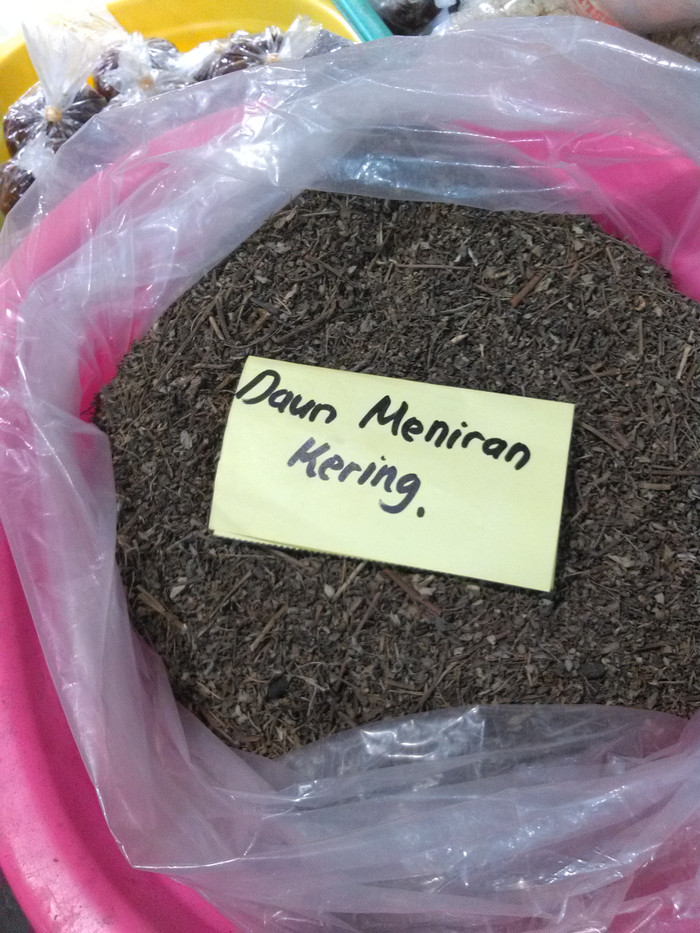 Daun Meniran
Kering.